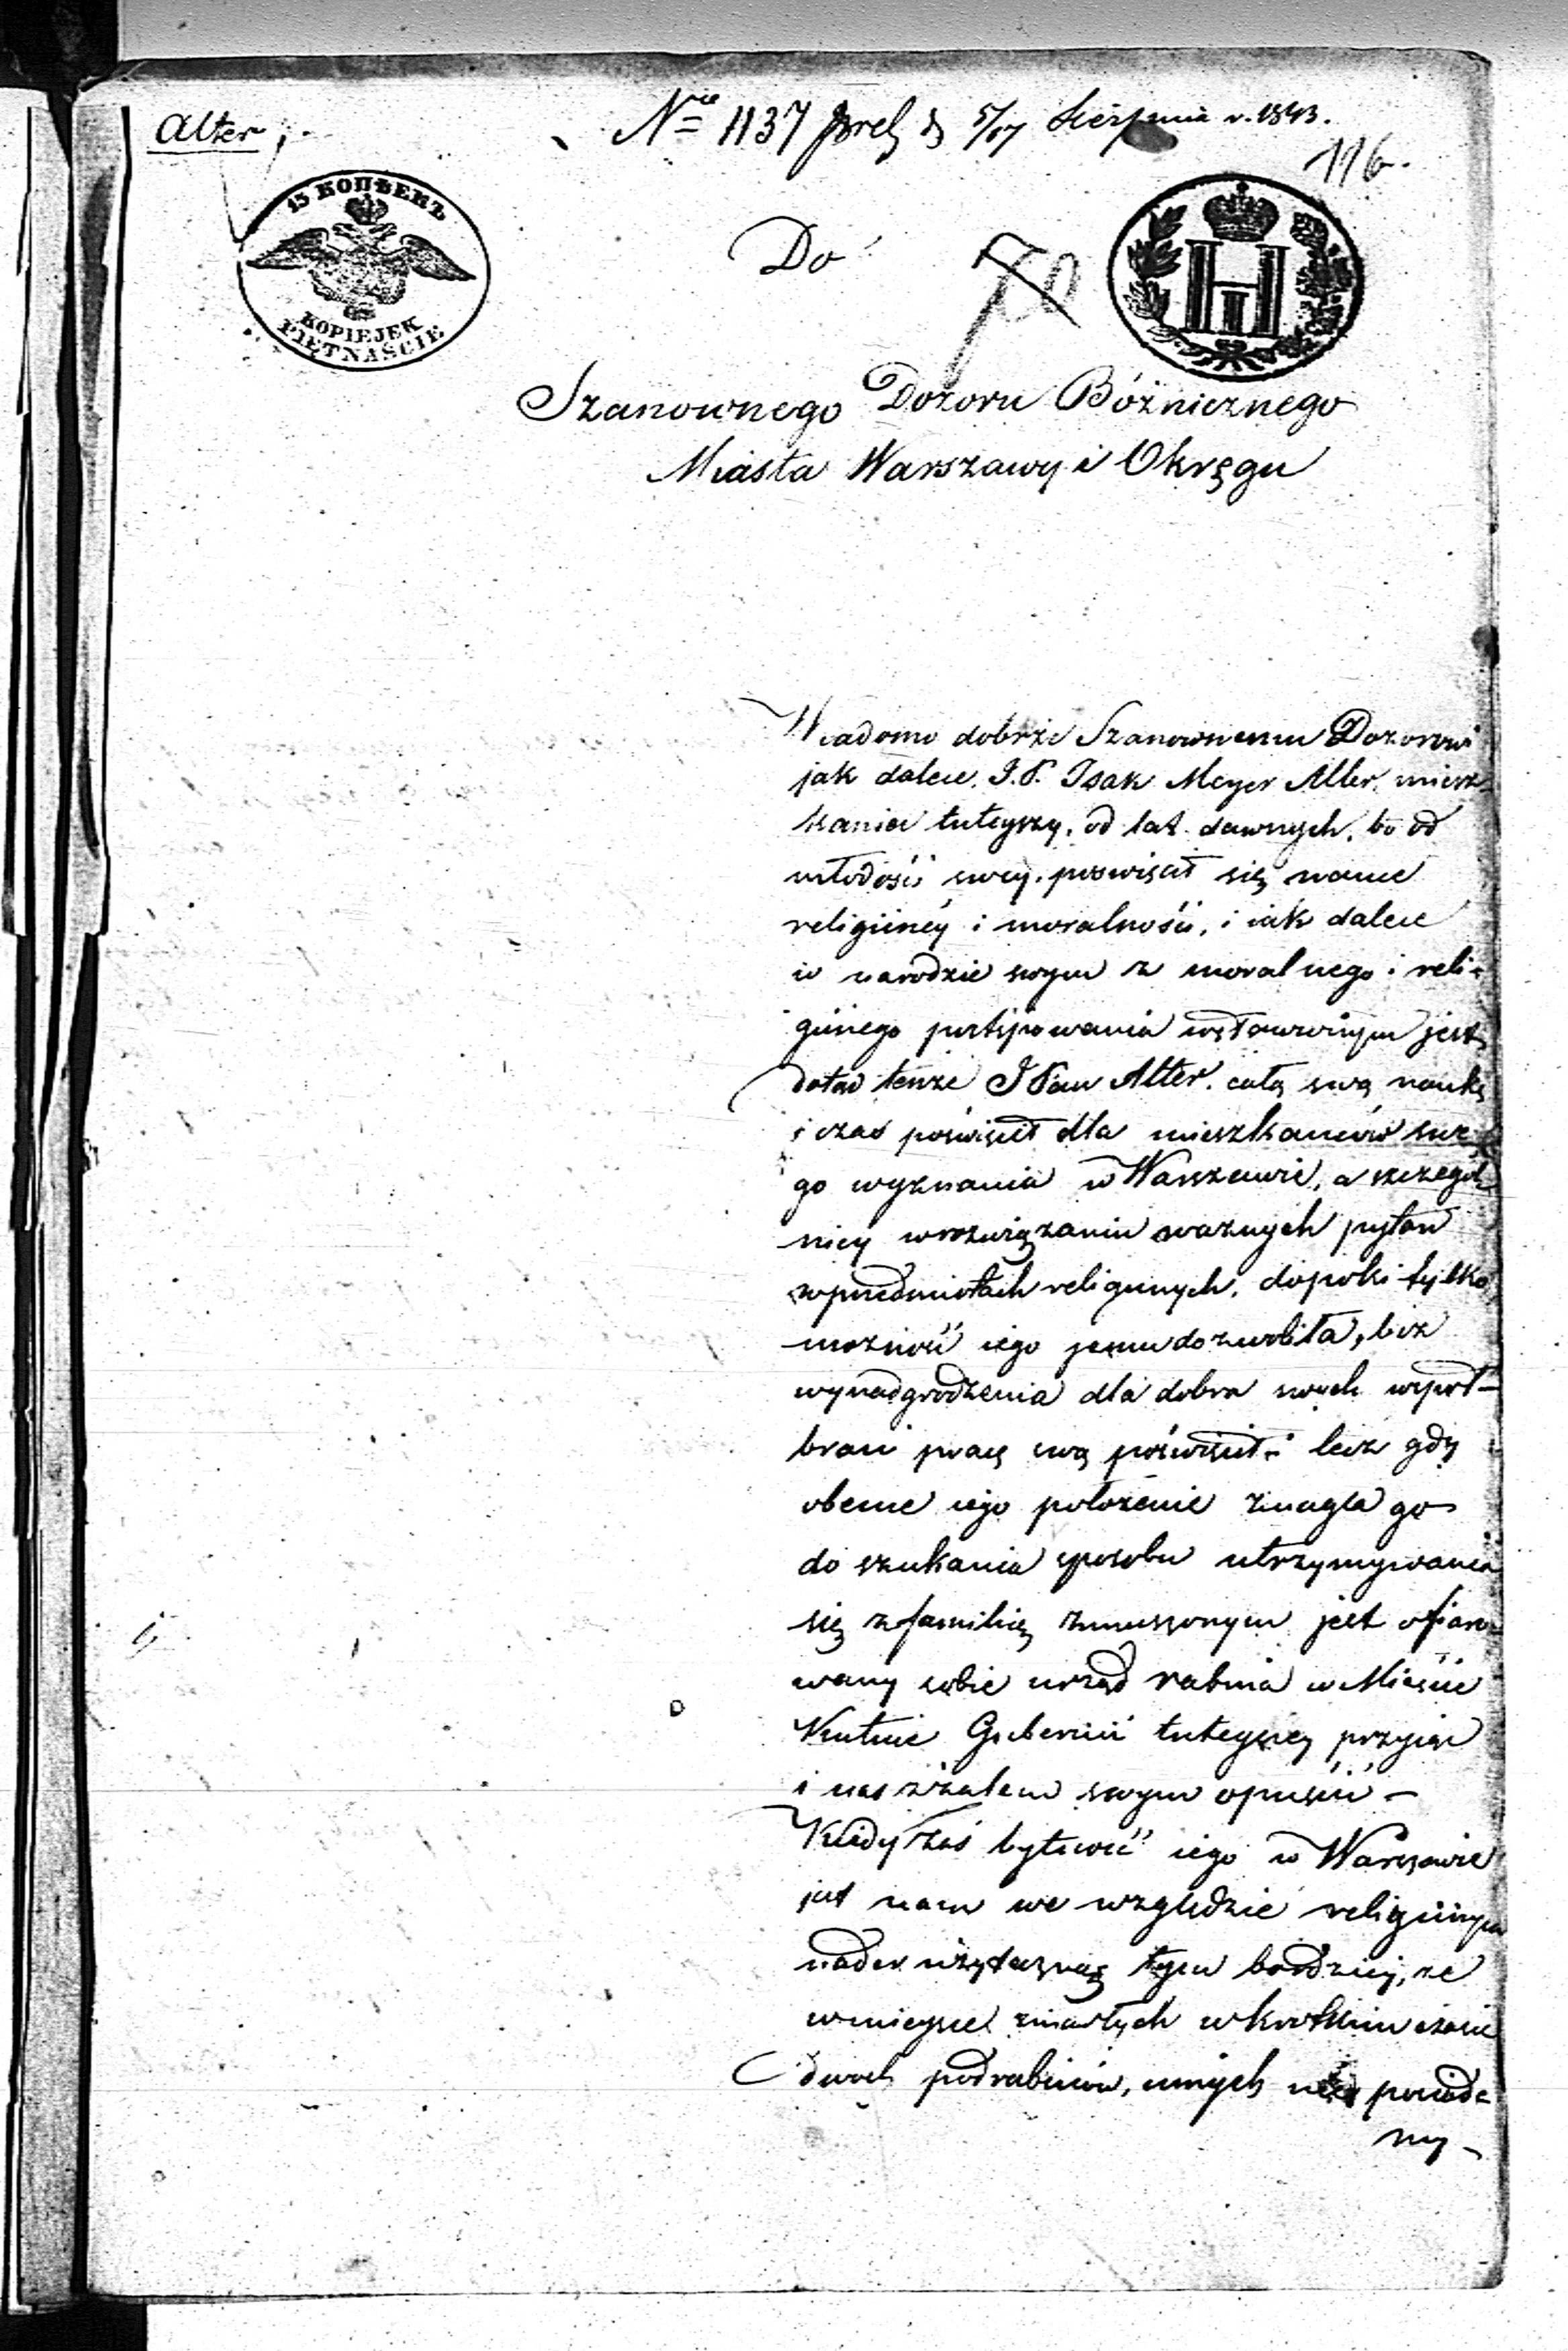 Alter
Nro 1137 prez d 5/17 Sierpnia r. 1843.
116.
15 КОПѢЕКЪ
KOPIEJEK
PIĘTNAŚCIE
Do
Szanownego Dozoru Bóżnicznego
Miasta Warszawy i Okręgu
Wiadomo dobrze Szanownemu Dozorowi
jak dalece J.P. Isak Meyer Alter, miesz-
kaniec tuteyszy, od lat dawnych, bo od
młodości swey poswięcił się nauce
religiiney i moralności, i iak dalece
w narodzie swym z moralnego i reli-
giinego postępowania wsławionym jest,
dotąd tenże JPan Alter całą swą naukę
i czas poświęcił dla mieszkanców swe-
go wyznania w Warszawie, a szczegól-
niey w rozwiązaniu ważnych pytan
w przedmiotach religiinych, dopoki tylko
możność iego jemu dozwoliła, bez
wynadgrodzenia dla dobra swych wspoł-
braci pracę swą poświęcił - lecz gdy
obecne iego położenie znagla go
do szukania sposobu utrzymywania
się z familią zmuszonym jest ofiaro-
wany sobie urząd rabina w Mieście
Kutnie Gubernii tuteyszey przyiąć
i nas z żalem swym opuścić -
Kiedy zaś bytność iego w Warszawie
jest nam we względzie religiinym
nader użyteczną tym bardziey, że
w mieysce zmarłych w krotkim czasie
dwoch podrabinów, innych nie posiada-
my -